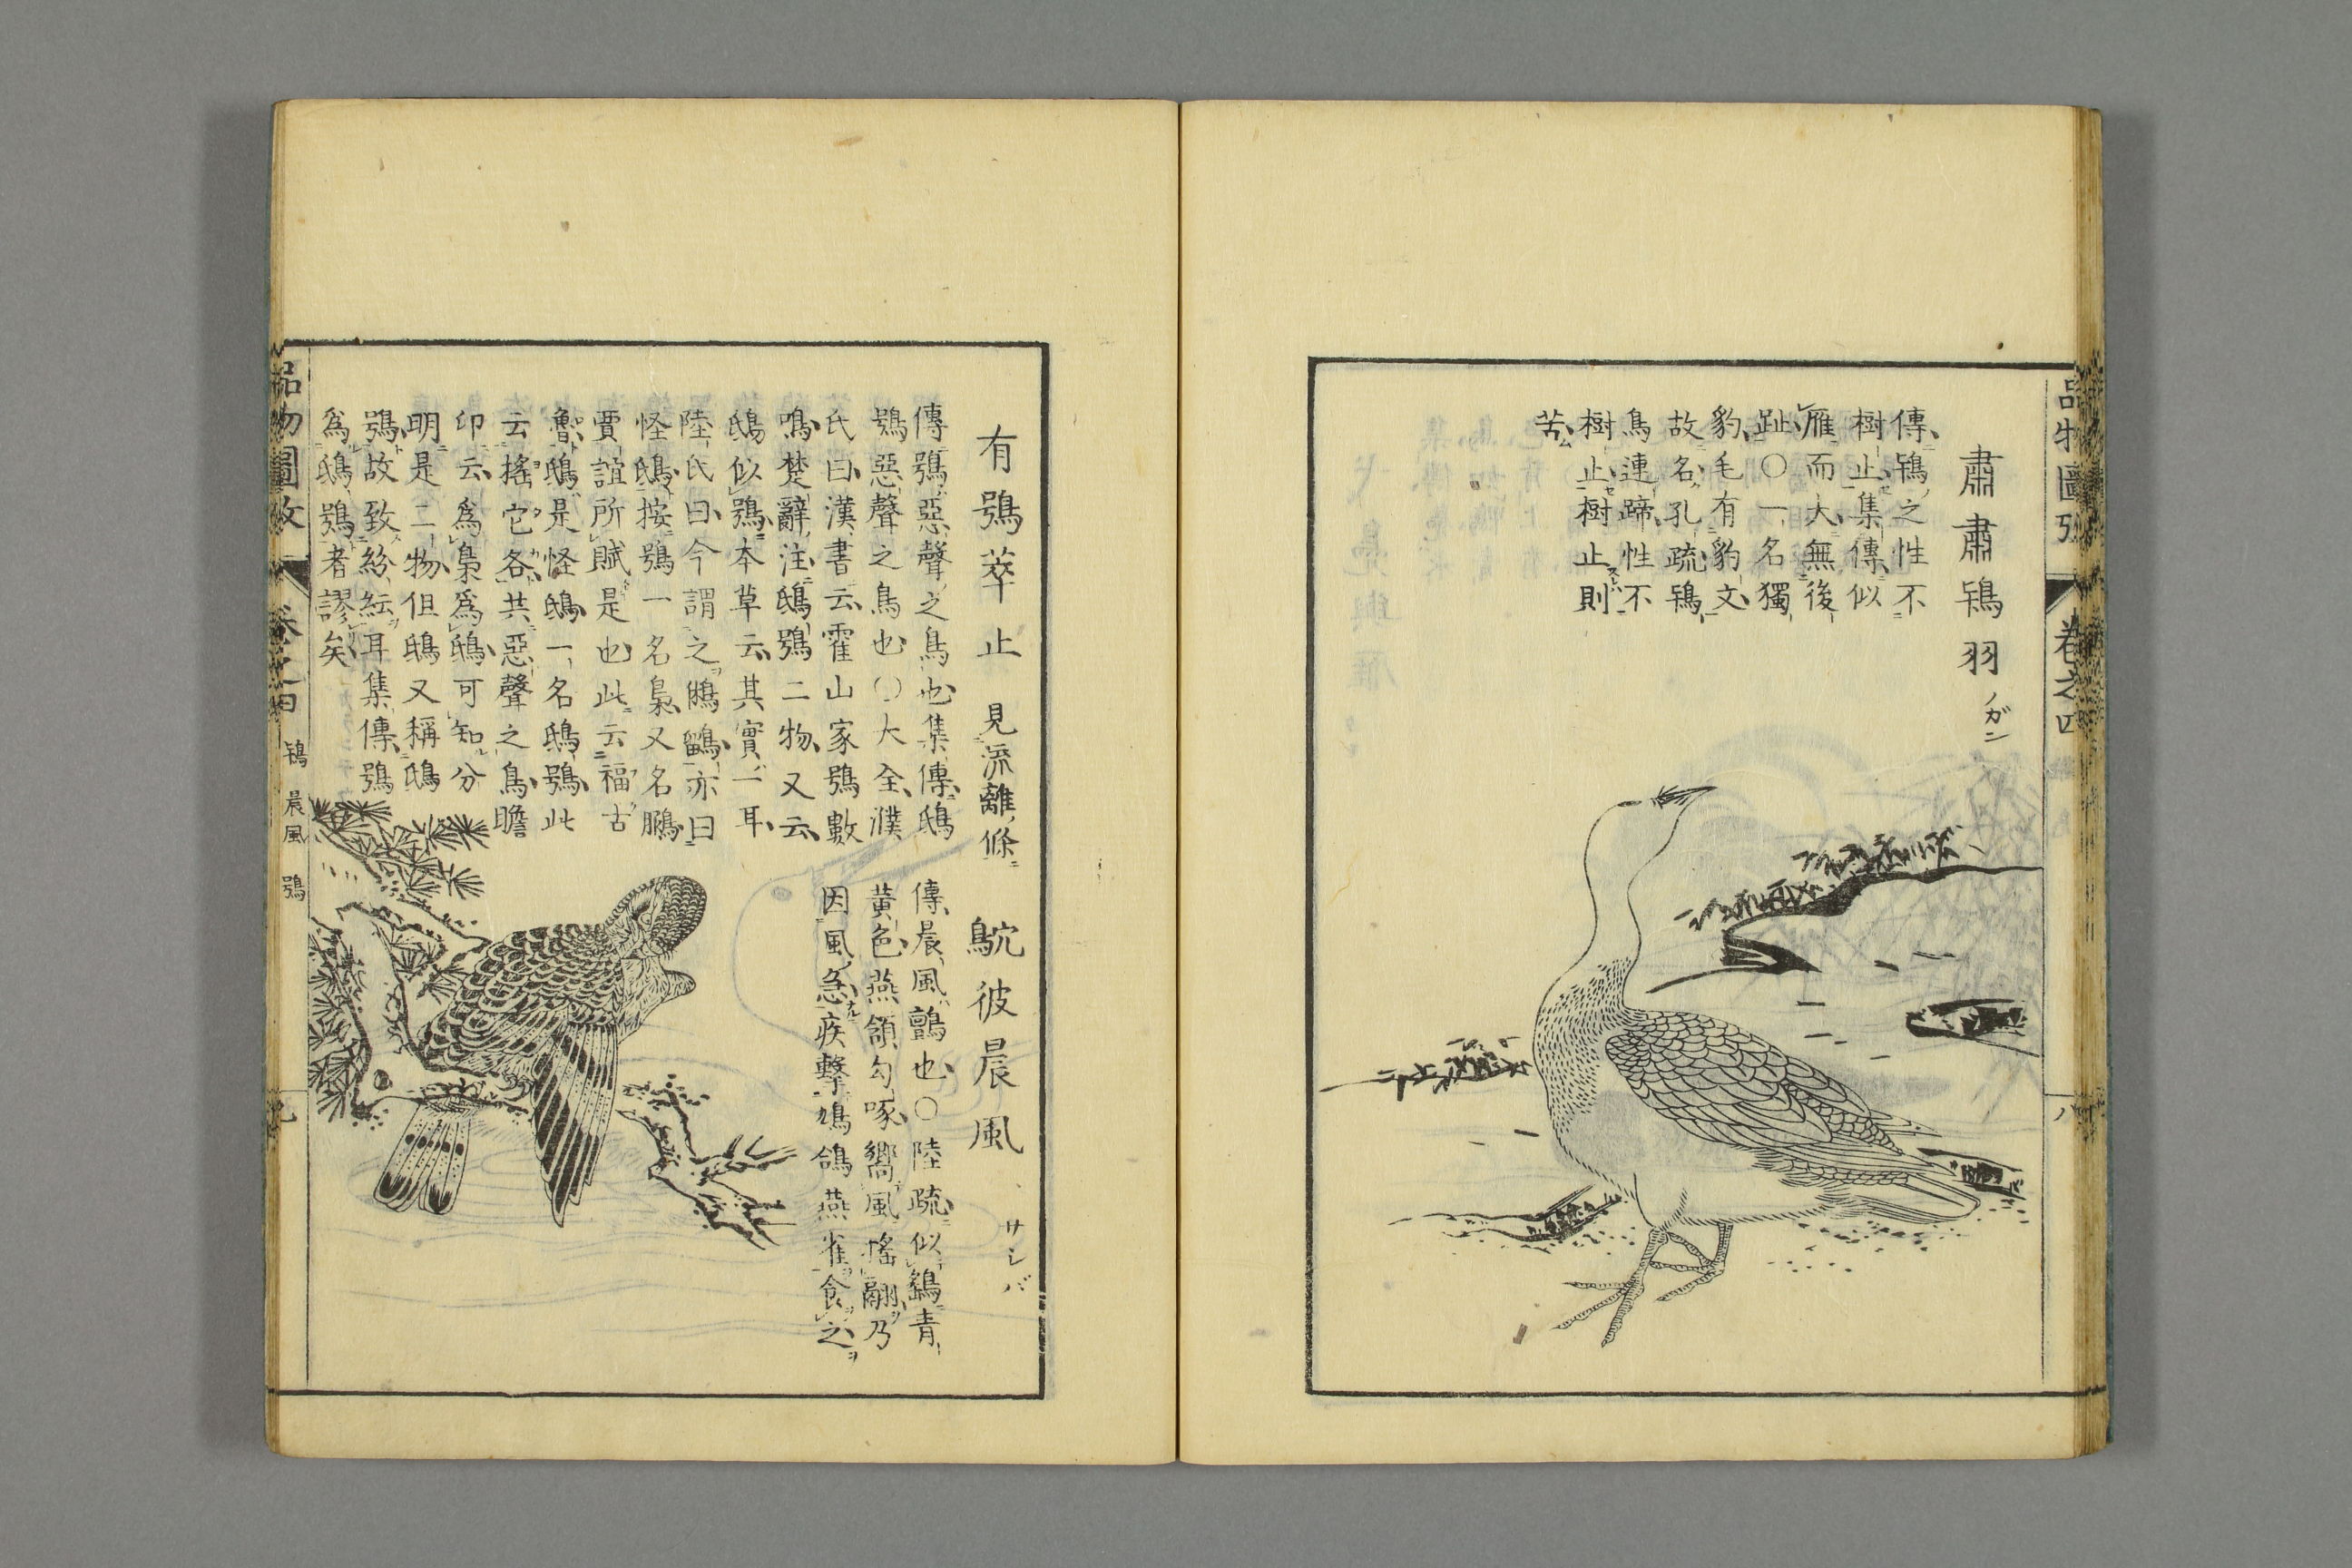 品物圖攷
卷之四
八
肅肅鴇羽 ノガン
傳、鴇之性不
樹止、集傳、似
雁而大、無後
趾、〇一名獨
豹、毛有豹文、
故名、孔疏、鴇
鳥連蹄、性不
樹止、樹止則
苦、
有鴞萃止 見流離條
傳、鴞、惡聲之鳥也、集傳、鴟
鴞、惡聲之鳥也、〇大全、濮
氏曰、漢書云、霍山家鴞數
鳴、楚辭注、鴟鴞二物、又云、
鴟似鴞、本草云、其實一耳、
陸氏曰、今謂之鵂鶹、亦曰
怪鴟、按鴞一名梟、又名鵩、
賈誼所賦是也、此云福古
魯、鴟是怪鴟、一名鴟鴞、此
云搖它各、共惡聲之鳥、瞻
卬云、爲梟爲鴟、可知分
明是二物、但鴟又稱鴟
鴞、故致紛紜耳、集傳、鴞
爲鴟鴞者謬矣、
鴥彼晨風 サシバ
傳、晨風、鸇也、〇陸疏、似鷂、青
黃色、燕頷勾啄、嚮風搖翮、乃
因風急疾擊鳩鴿燕雀食之、
品物圖攷
卷之四
鴇 晨風 鴞
九